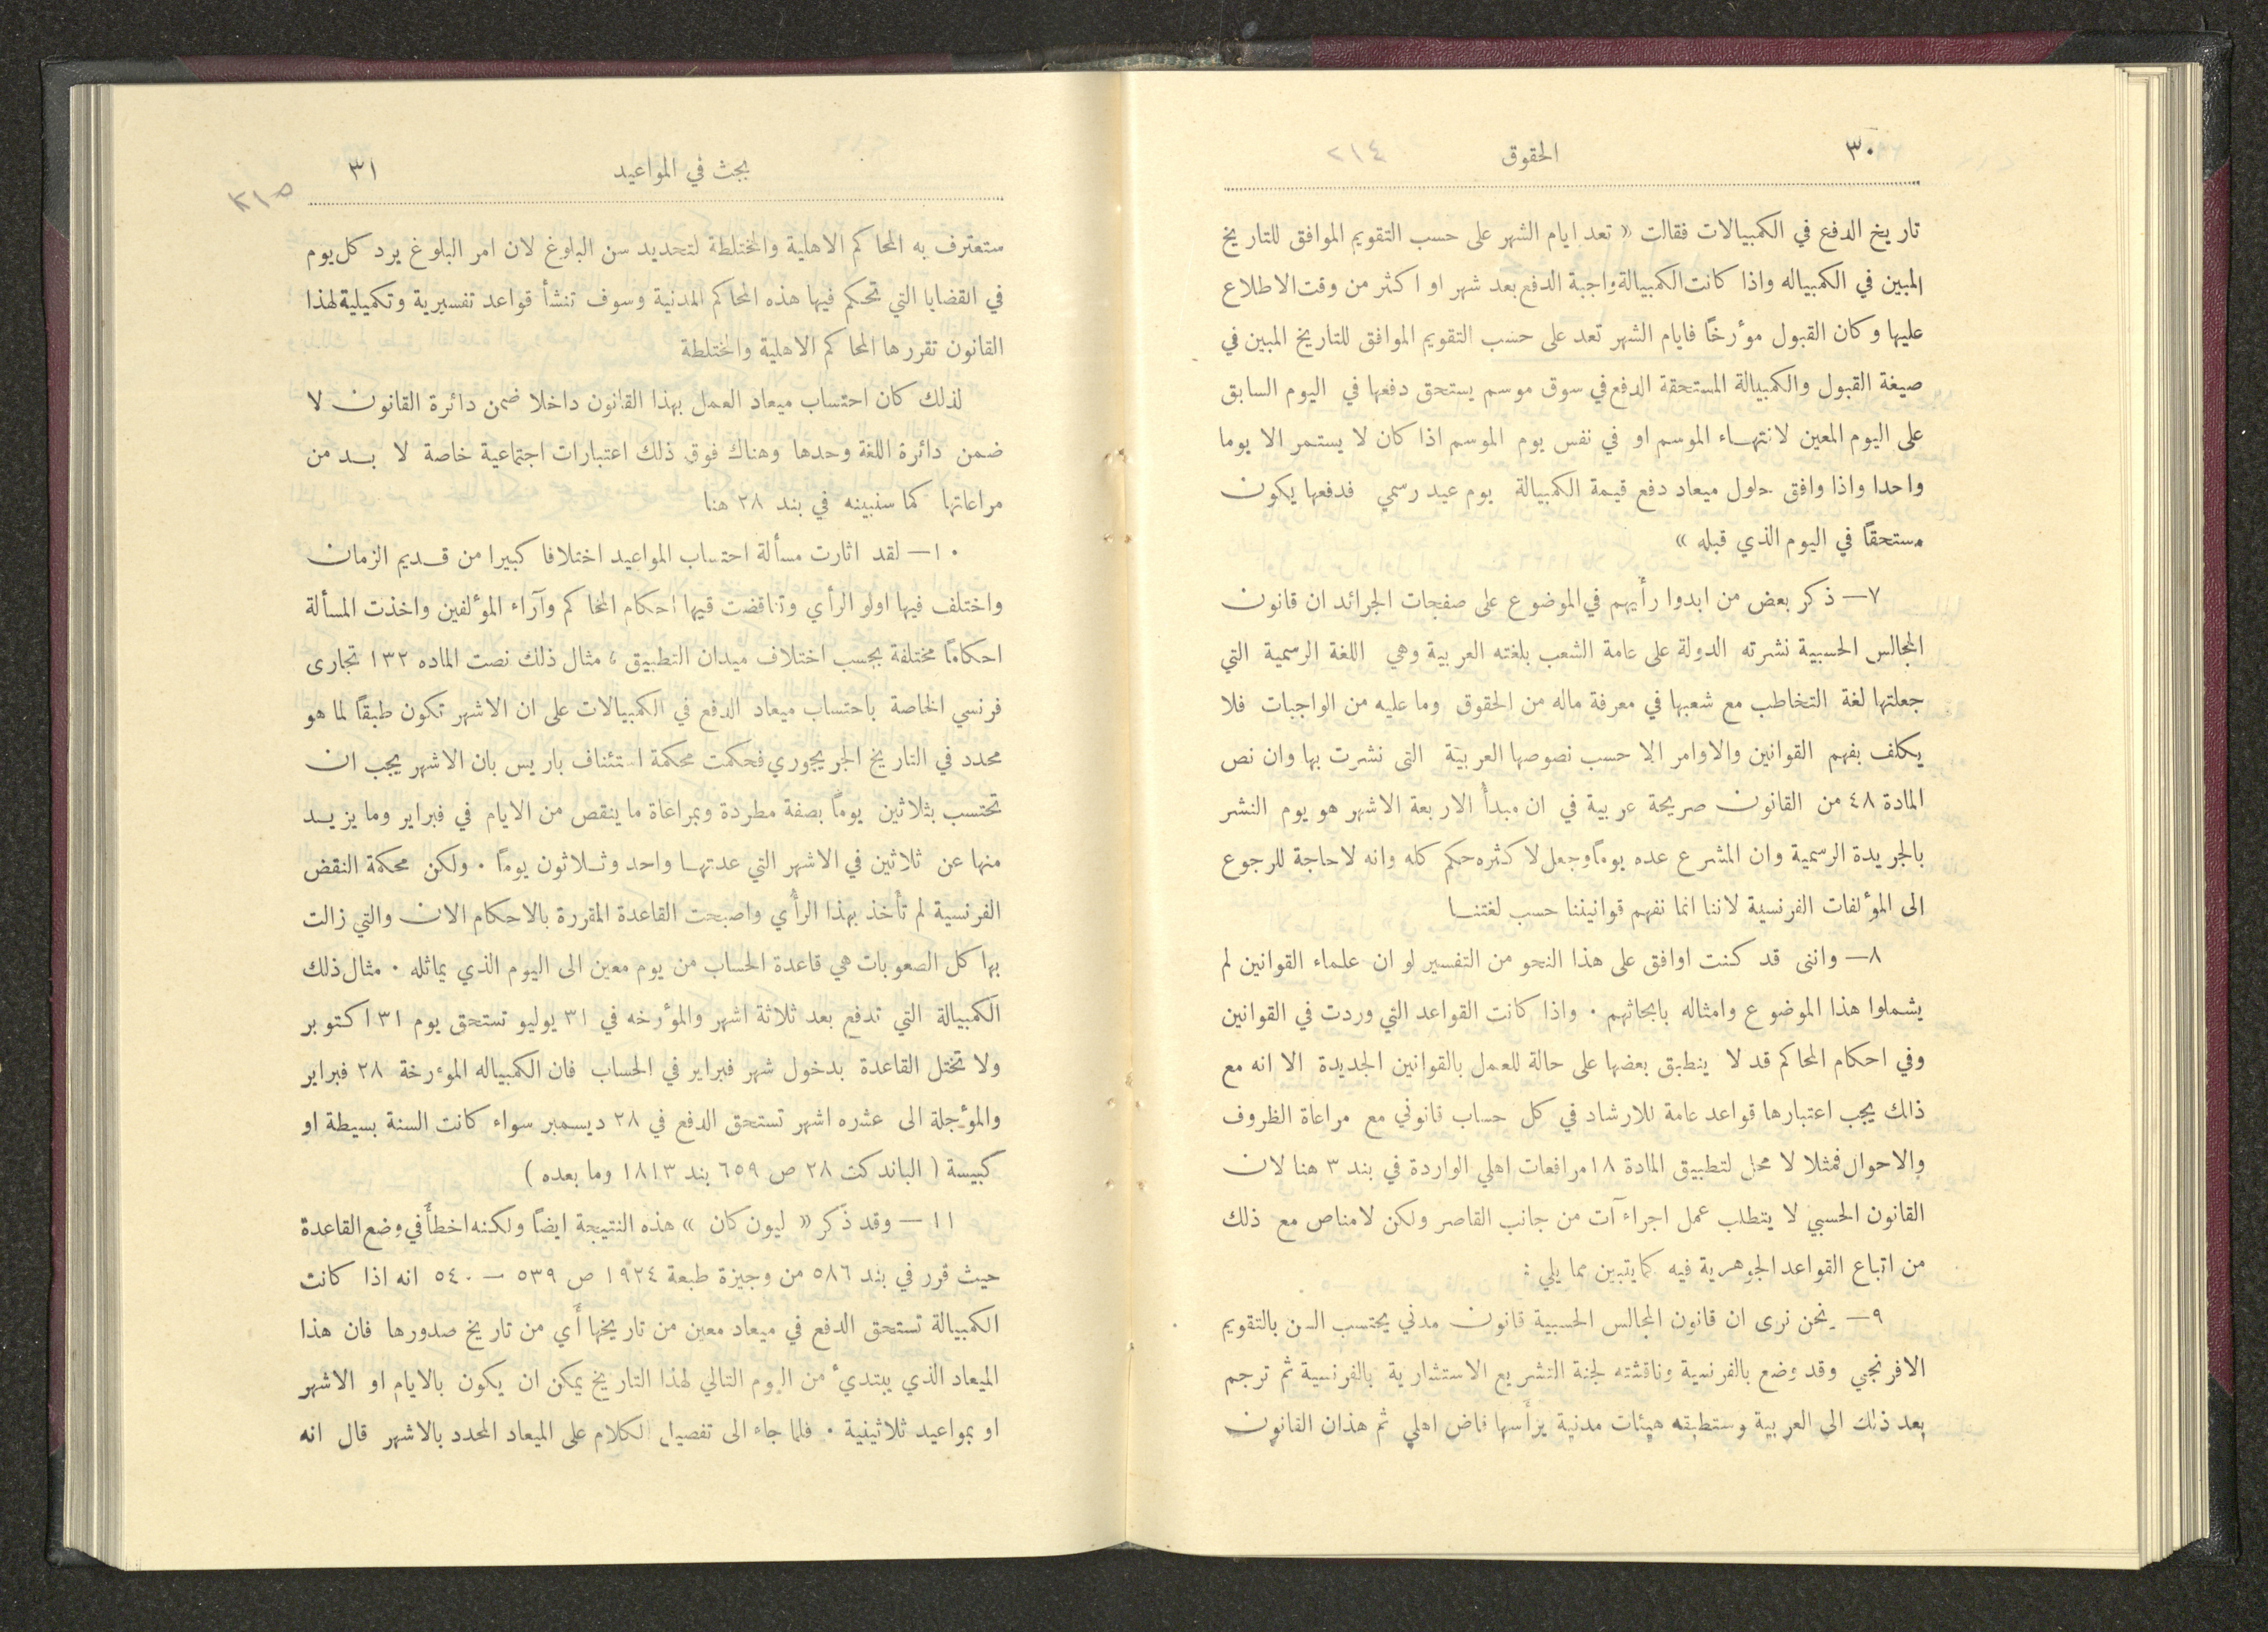 ٣٠
الحقوق
٢١٤
تاريخ الدفع في الكمبيالات فقالت « تعد ايام الشهر على حسب التقويم الموافق للتاريخ
المبين في الكمبياله واذا كانت الكمبيالة واجبة الدفع بعد شهر او اكثر من وقت الاطلاع
عليها وكان القبول مؤرخاً فايام الشهر تعد على حسب التقويم الموافق للتاريخ المبين في
صيغة القبول والكمبيالة المستحقة الدفع في سوق موسم يستحق دفعها في اليوم السابق
على اليوم المعين لانتهاء الموسم او في نفس يوم الموسم اذا كان لا يستمر الا يوما
واحدا واذا وافق حلول ميعاد دفع قيمة الكمبيالة يوم عيد رسمي فدفعها يكون
مستحقاً في اليوم الذي قبله »
٧— ذكر بعض من ابدوا رأيهم في الموضوع على صفحات الجرائد ان قانون
المجالس الحسبية نشرته الدولة على عامة الشعب بلغته العربية وهي اللغة الرسمية التي
جعلتها لغة التخاطب مع شعبها في معرفة ماله من الحقوق وما عليه من الواجبات فلا
يكلف بفهم القوانين والاوامر الا حسب نصوصها العربية التى نشرت بها وان نص
المادة ٤٨ من القانون صريحة عربية في ان مبدأ الاربعة الاشهر هو يوم النشر
بالجريدة الرسمية وان المشرع عده يوماً وجعل لاكثره حكم كله وانه لا حاجة للرجوع
الى المؤلفات الفرنسية لاننا انما نفهم قوانيننا حسب لغتنا
٨— واننى قد كنت اوافق على هذا النحو من التفسير لو ان علماء القوانين لم
يشملوا هذا الموضوع وامثاله بابحاثهم . واذا كانت القواعد التي وردت في القوانين
وفي احكام المحاكم قد لا ينطبق بعضها على حالة للعمل بالقوانين الجديدة الا انه مع
ذلك يجب اعتبارها قواعد عامة للارشاد في كل حساب قانوني مع مراعاة الظروف
والاحوال فمثلا لا محل لتطبيق المادة ١٨ مرافعات اهلي الواردة في بند ٣ هنا لان
القانون الحسبي لا يتطلب عمل اجراءآت من جانب القاصر ولكن لا مناص مع ذلك
من اتباع القواعد الجوهرية فيه كما يتبين مما يلي :
٩— نحن نرى ان قانون المجالس الحسبية قانون مدني يحتسب السن بالتقويم
الافرنجي وقد وضع بالفرنسية وناقشته لجنة التشريع الاستشارية بالفرنسية ثم ترجم
بعد ذلك الى العربية وستطبقه هيئات مدنية يرأسها قاض اهلي ثم هذان القانون
بحث في المواعيد
٣١
٢١٥
ستعترف به المحاكم الاهلية والمختلطة لتحديد سن البلوغ لان امر البلوغ يرد كل يوم
في القضايا التي تحكم فيها هذه المحاكم المدنية وسوف تنشأ قواعد تفسيرية وتكميلية لهذا
القانون تقررها المحاكم الاهلية والمختلطة
لذلك كان احتساب ميعاد العمل بهذا القانون داخلا ضمن دائرة القانون لا
ضمن دائرة اللغة وحدها وهناك فوق ذلك اعتبارات اجتماعية خاصة لا بد من
مراعاتها كما سنبينه في بند ٢٨ هنا
١٠— لقد اثارت مسألة احتساب المواعيد اختلافا كبيرا من قديم الزمان
واختلف فيها اولو الرأي وتناقضت فيها احكام المحاكم وآراء المؤلفين واخذت المسألة
احكاماً مختلفة بحسب اختلاف ميدان التطبيق ، مثال ذلك نصت الماده ١٣٢ تجارى
فرنسي الخاصة باحتساب ميعاد الدفع في الكمبيالات على ان الاشهر تكون طبقاً لما هو
محدد في التاريخ الجريجوري فحكمت محكمة استئناف باريس بان الاشهر يجب ان
تحتسب بثلاثين يوماً بصفة مطردة وبمراعاة ما ينقص من الايام في فبراير وما يزيد
منها عن ثلاثين في الاشهر التي عدتها واحد وثلاثون يوماً . ولكن محكمة النقض
الفرنسية لم تأخذ بهذا الرأي واصبحت القاعدة المقررة بالاحكام الان والتي زالت
بها كل الصعوبات هي قاعدة الحساب من يوم معين الى اليوم الذي يماثله . مثال ذلك
الكمبيالة التي تدفع بعد ثلاثة اشهر والمؤرخه في ٣١ يوليو تستحق يوم ٣١ اكتوبر
ولا تختل القاعدة بدخول شهر فبراير في الحساب فان الكمبياله المؤرخة ٢٨ فبراير
والمؤجلة الى عشره اشهر تستحق الدفع في ٢٨ ديسمبر سواء كانت السنة بسيطة او
كبيسة ( الباندكت ٢٨ ص ٦٥٩ بند ١٨١٣ وما بعده )
١١ — وقد ذكر « ليون كان » هذه النتيجة ايضاً ولكنه اخطأ في وضع القاعدة
حيث قرر في بند ٥٨٦ من وجيزة طبعة ١٩٢٤ ص ٥٣٩ — ٥٤٠ انه اذا كانت
الكمبيالة تستحق الدفع في ميعاد معين من تاريخها أي من تاريخ صدورها فان هذا
الميعاد الذي يبتديء من اليوم التالي لهذا التاريخ يمكن ان يكون بالايام او الاشهر
او بمواعيد ثلاثينية . فلما جاء الى تفصيل الكلام على الميعاد المحدد بالاشهر قال انه